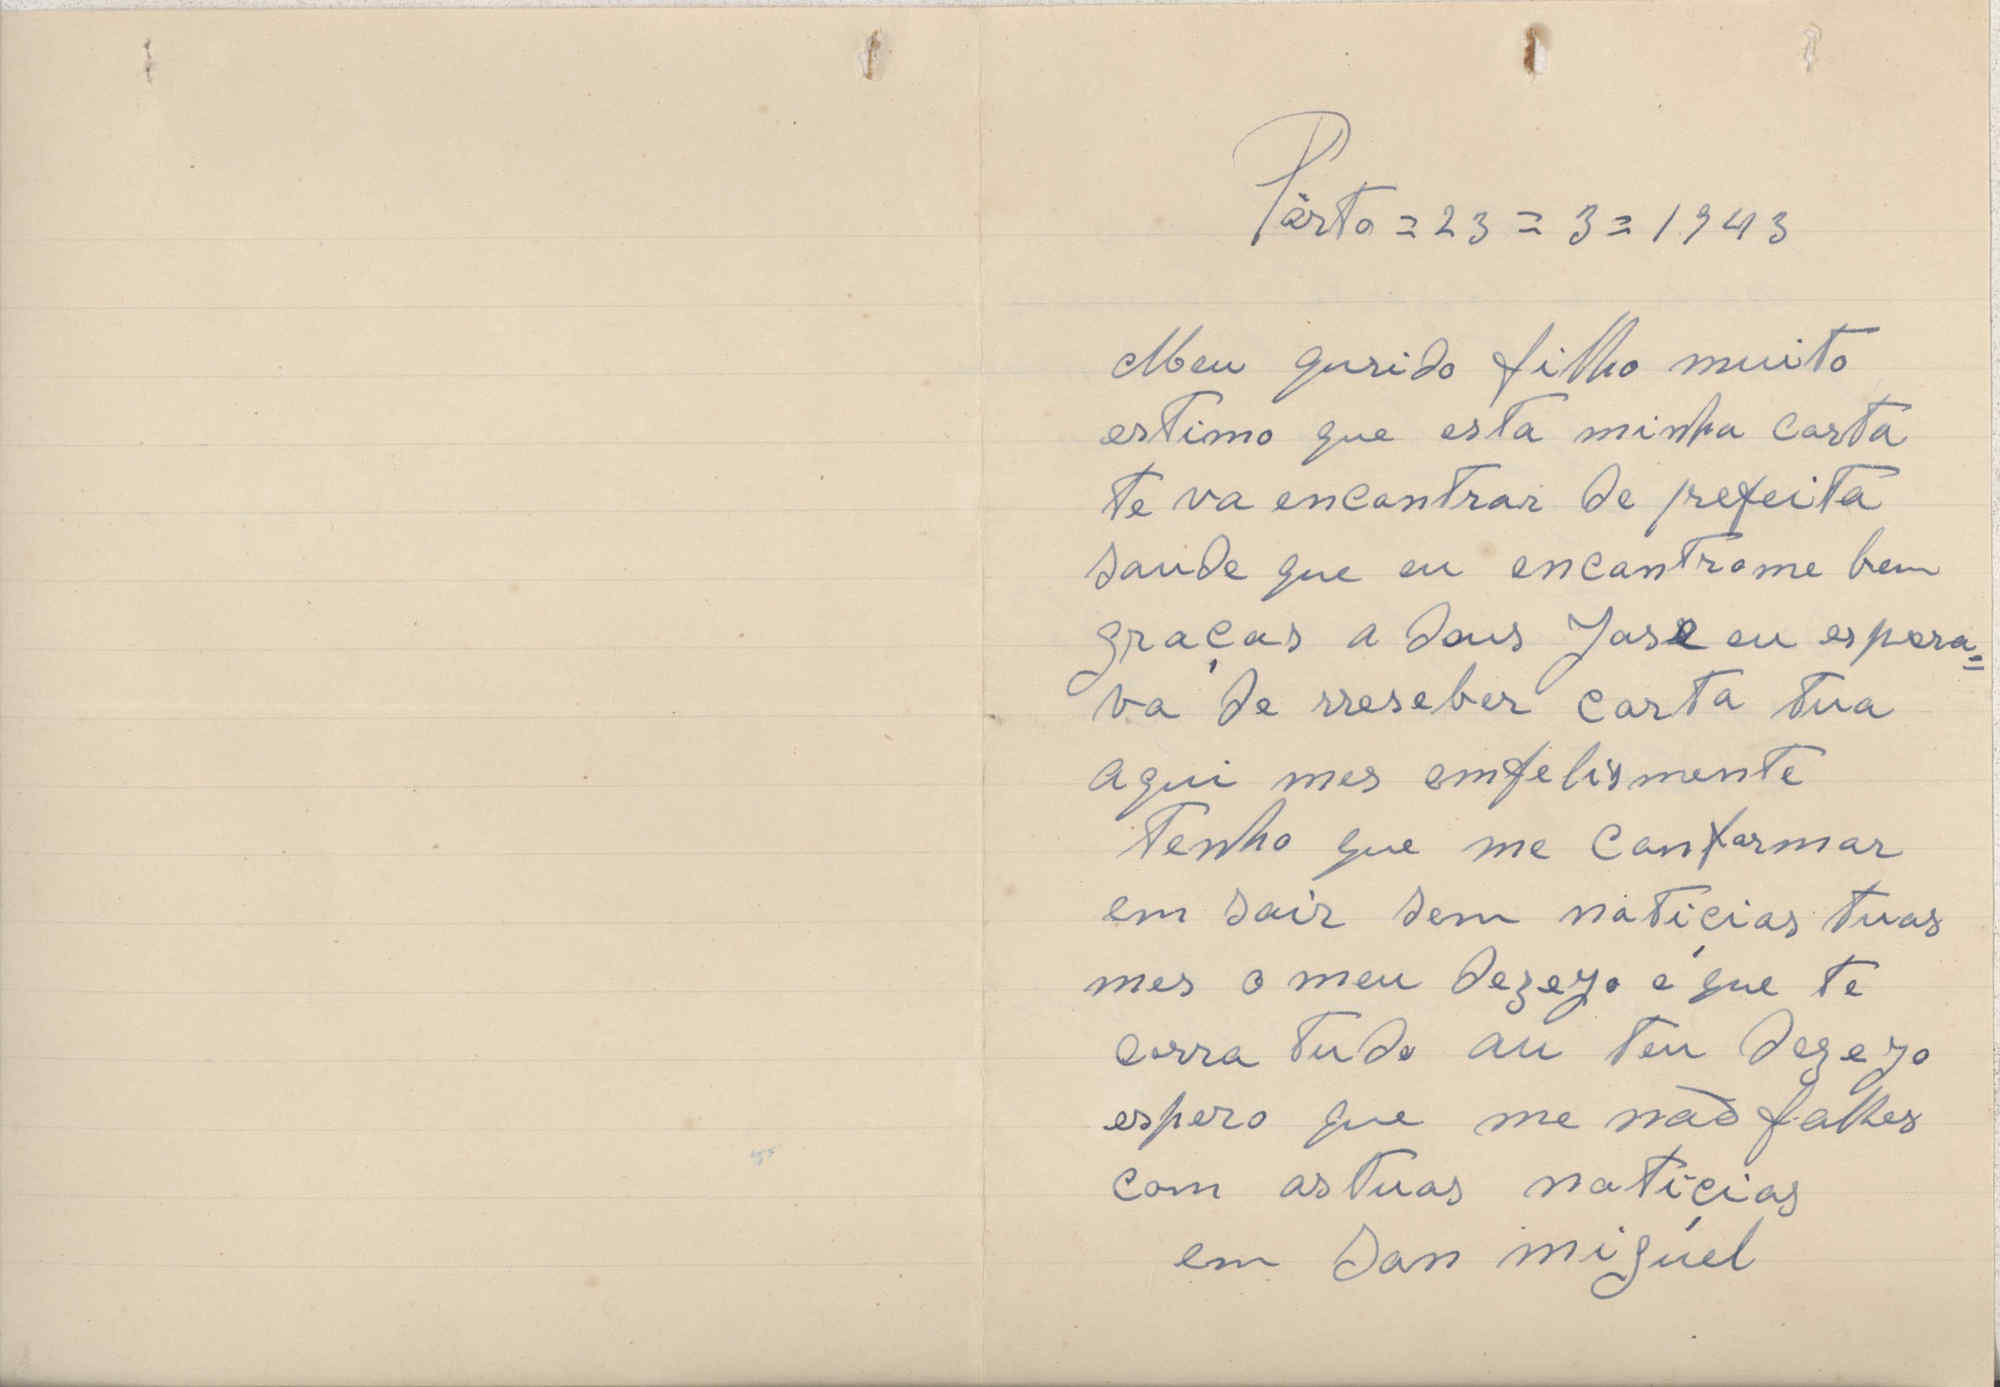 Pôrto = 23 = 3 = 1943
Meu qurido filho muito
estimo que esta minha carta
te va encontrar de prefeita
saude que eu encontrome bem
graças a Deus Jose eu espera=
va de rreseber carta tua
aqui mes emfelismente
tenho que me conformar
em sair sem notíçias tuas
mes o meu dezeyo é que te
corra tudo au teu dezeyo
espero que me não falhes
com as tuas notíçias
em san migúel